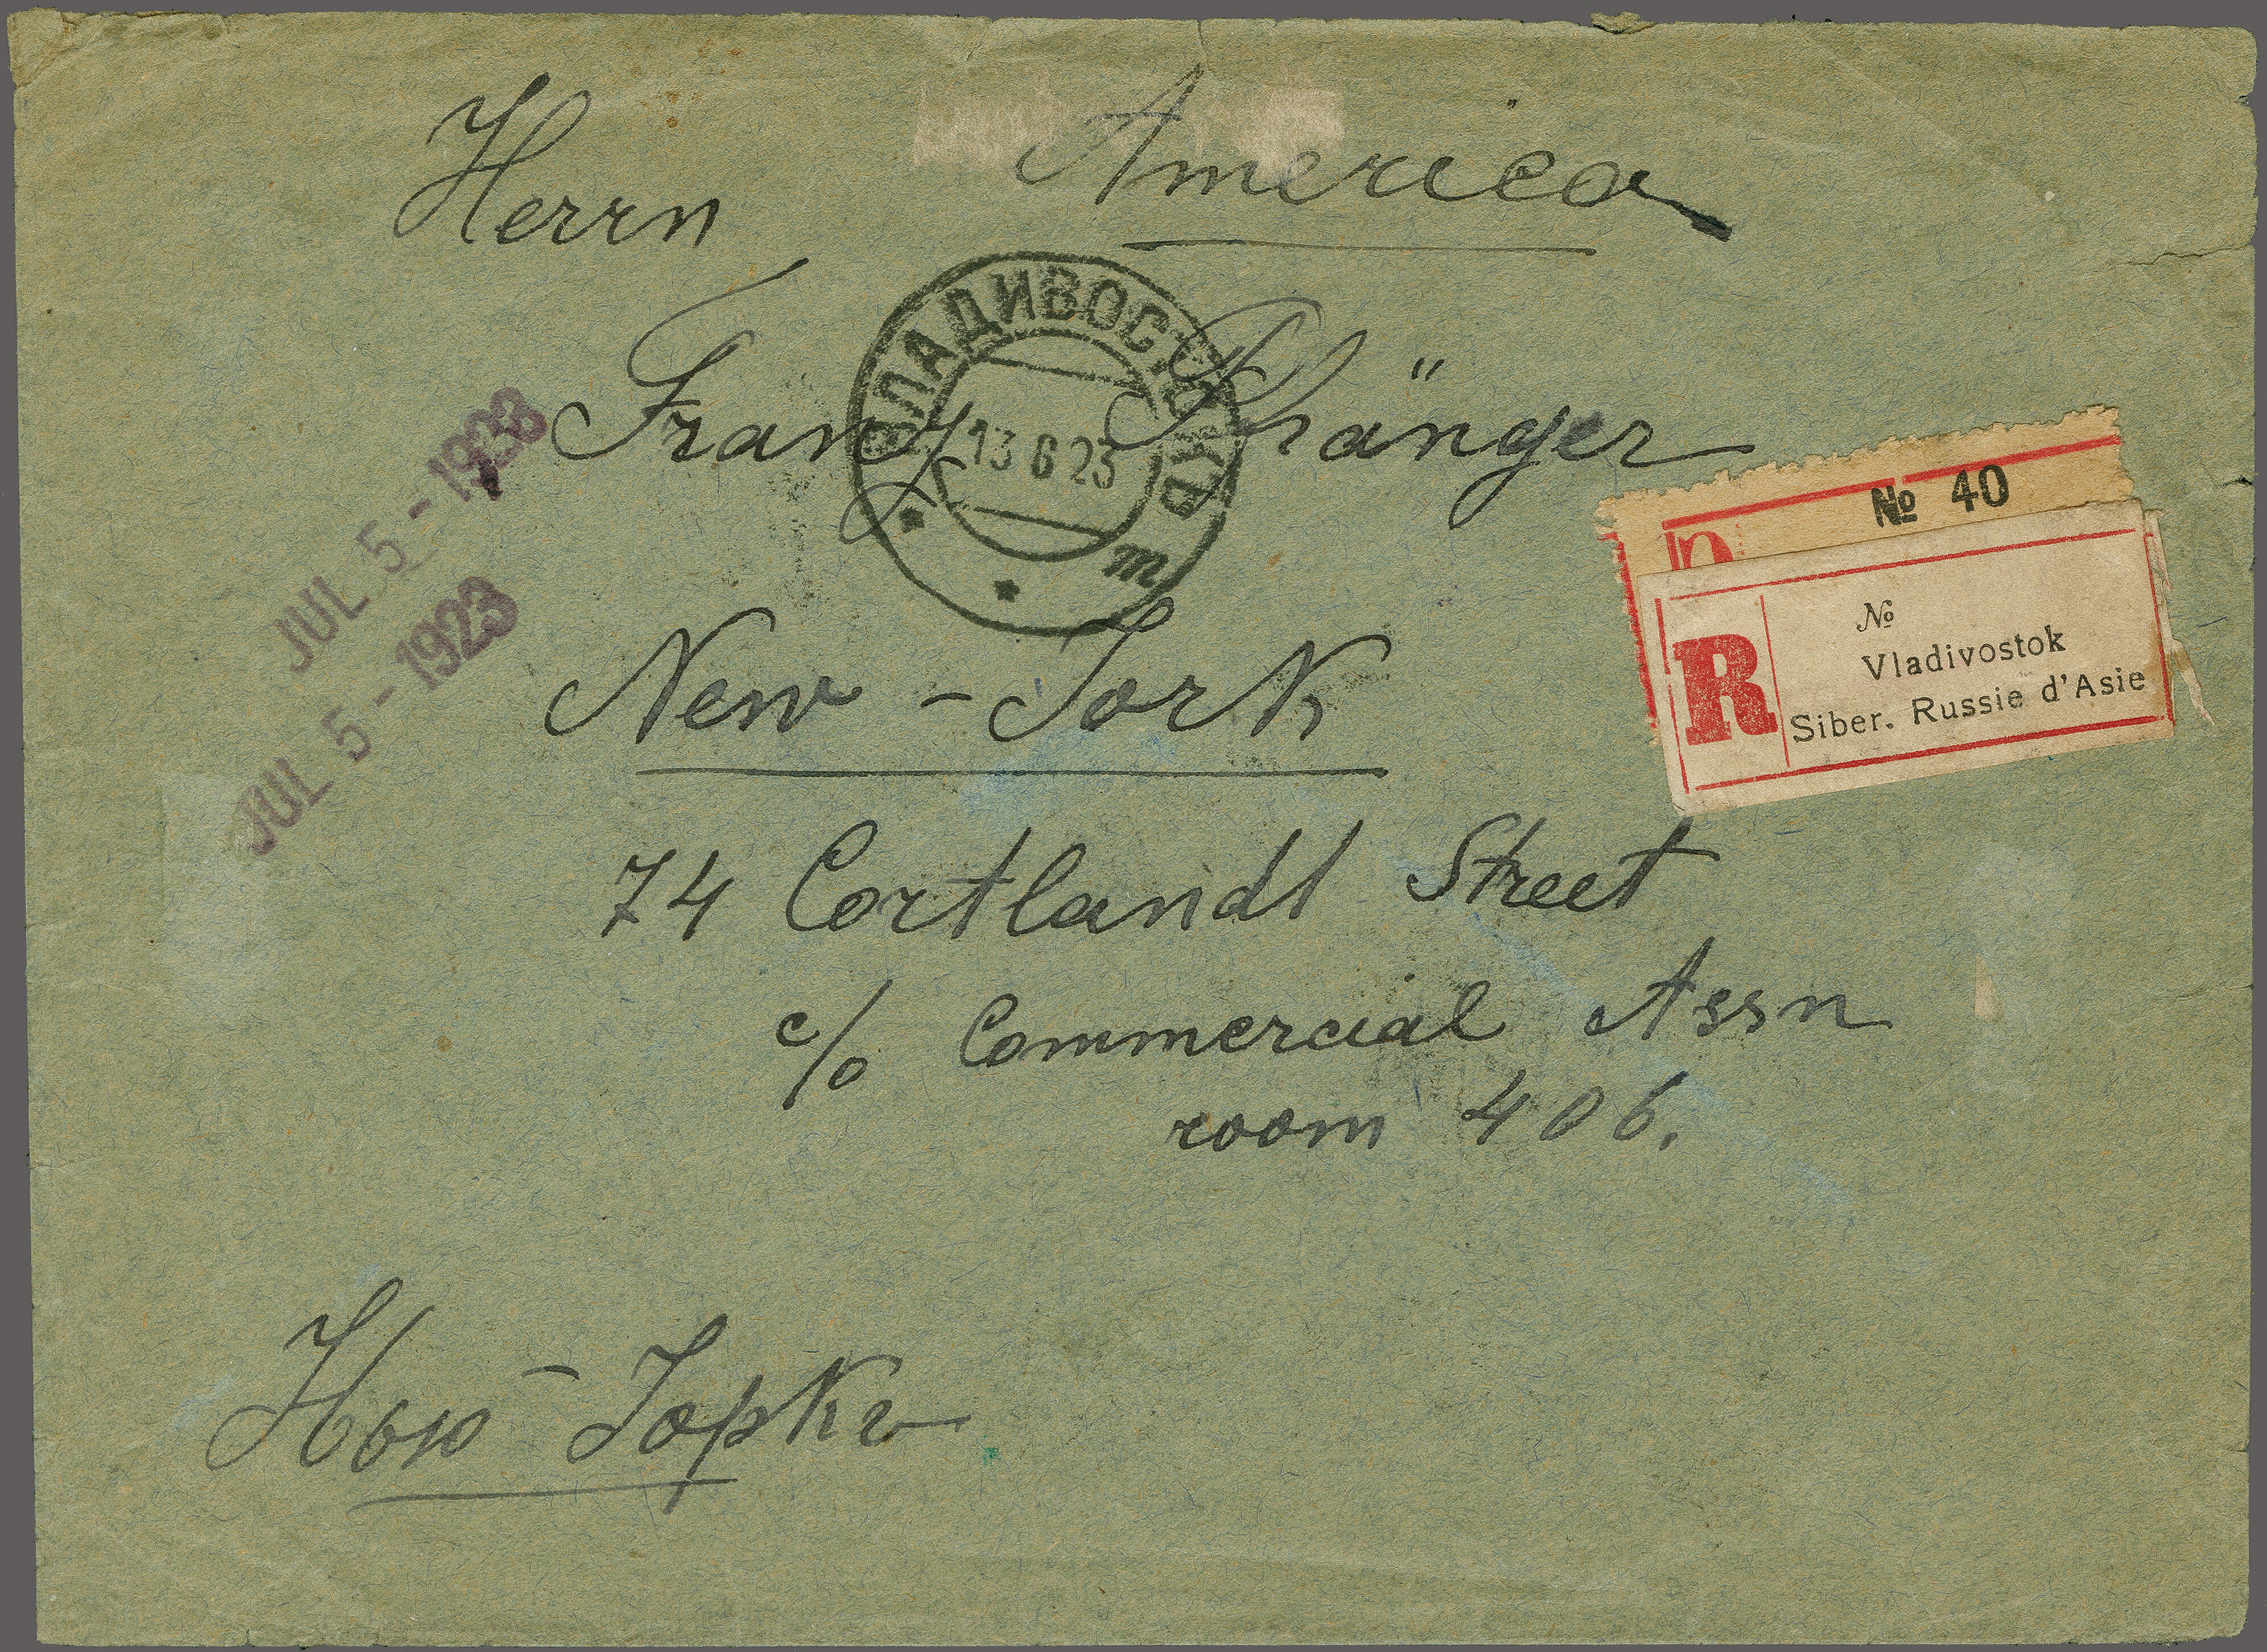 America
Herrn
Franz Phänger
ВЛАДИВОСТОКЪ
13 6 23
т
JUL 5 - 1923
JUL 5 - 1923
№ 40
R
№
Vladivostok
Siber. Russie d'Asie
New - York
74 Cortlandt Street
c/o Commercial Assn
room 406.
Нью - Іоркъ